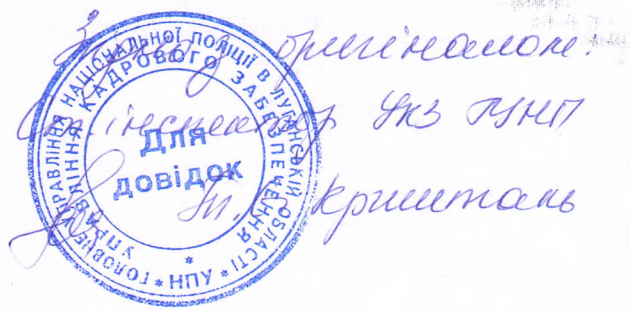 Згідно з оригіналом:
Ст. інспектор УКЗ ГУНП
Кришталь
ГОЛОВНЕ УПРАВЛІННЯ НАЦІОНАЛЬНОЇ ПОЛІЦІЇ В ЛУГАНСЬКІЙ ОБЛАСТІ * НПУ *
УПРАВЛІННЯ КАДРОВОГО ЗАБЕЗПЕЧЕННЯ *
Для
довідок